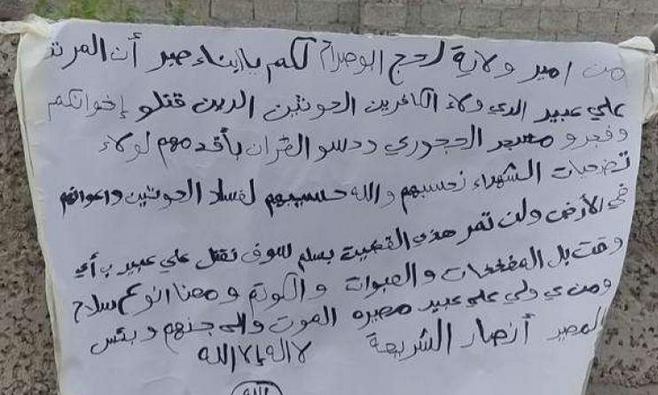 من امير ولاية لحج ابو صرام لكم يا ابناء صبر أن المرتد
علي عبيد الذي ولاء الكافرين الحوثين الذين قتلو إخوانكم
و فجرو مسجد الحجوري ودسو القران بأقدمهم لولاء
تضحيات الشهداء نحسبهم والله حسيبهم لفساد الحوثين واعوانهم
في الأرض ولن تمر هذي القضيت بسلم لسوف نقتل علي عبيد ب أي
وقت بل المفخخات والعبوات والكوتم ومعنا انوعم سلاح
ومن ي ولي علي عبيد مصيره الموت والى جنهم و بئس
المصير أنصار الشريعة لا اله إلا الله
الله